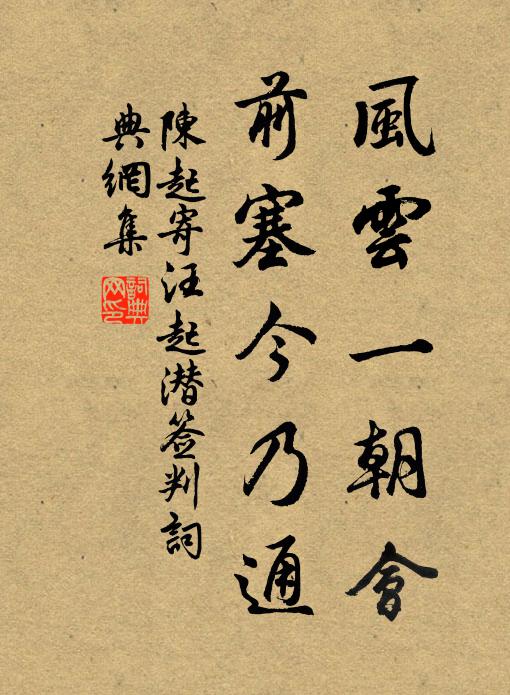 風雲一朝會
前塞今乃通
陳起寄汪起潜签判詞
典網集
詞典
网印